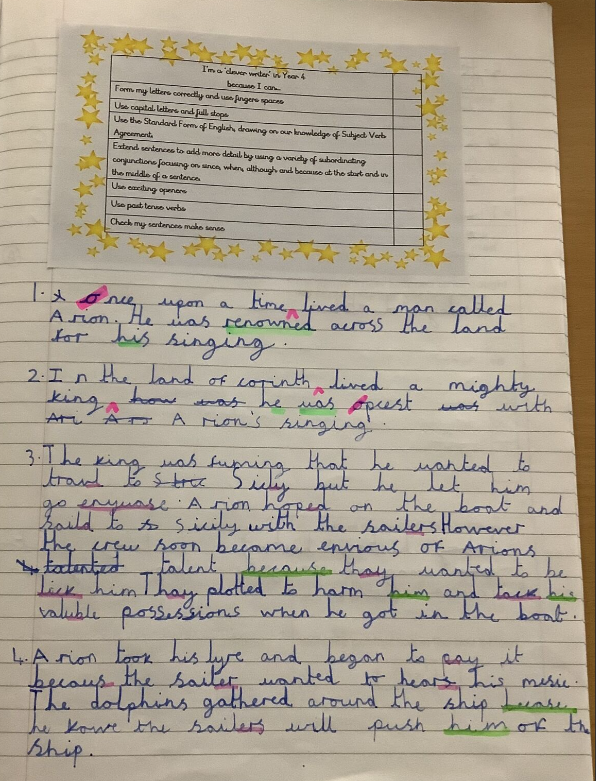 I'm a 'clever writer' in Year 4
because I can...
Form my letters correctly and use fingers spaces
Use capital letters and full stops
Use the Standard Form of English, drawing on our knowledge of Subject Verb
Agreement.
Extend sentences to add more detail by using a variety of subordinating
conjunctions focusing on since, when, although and because at the start and in
the middle of a sentence.
Use exciting openers
Use past tense verbs
Check my sentences make sense
1. once upon a time, lived a man called
Arion. He was renowned across the land
for his singing.
2. In the land of corinth, lived a mighty
king, how was he was opcest was with
Ari A Arion's singing.
3. The king was fuming that he wanted to
travl to Sicily but he let him
go enywase. Arion hoped on the boat and
saild to Sicily with the sailers However
the crew soon became envious of Arions
talented talent because thay wanted to be
lick him Thay plotted to harm him and tack his
valuble possessions when he got in the boat.
4. Arion took his lyre and began to pay it
becaus the sailer wanted to hears his mesic.
The dolphins gathered around the ship becase
he kowe the sailers will push him of the
ship.